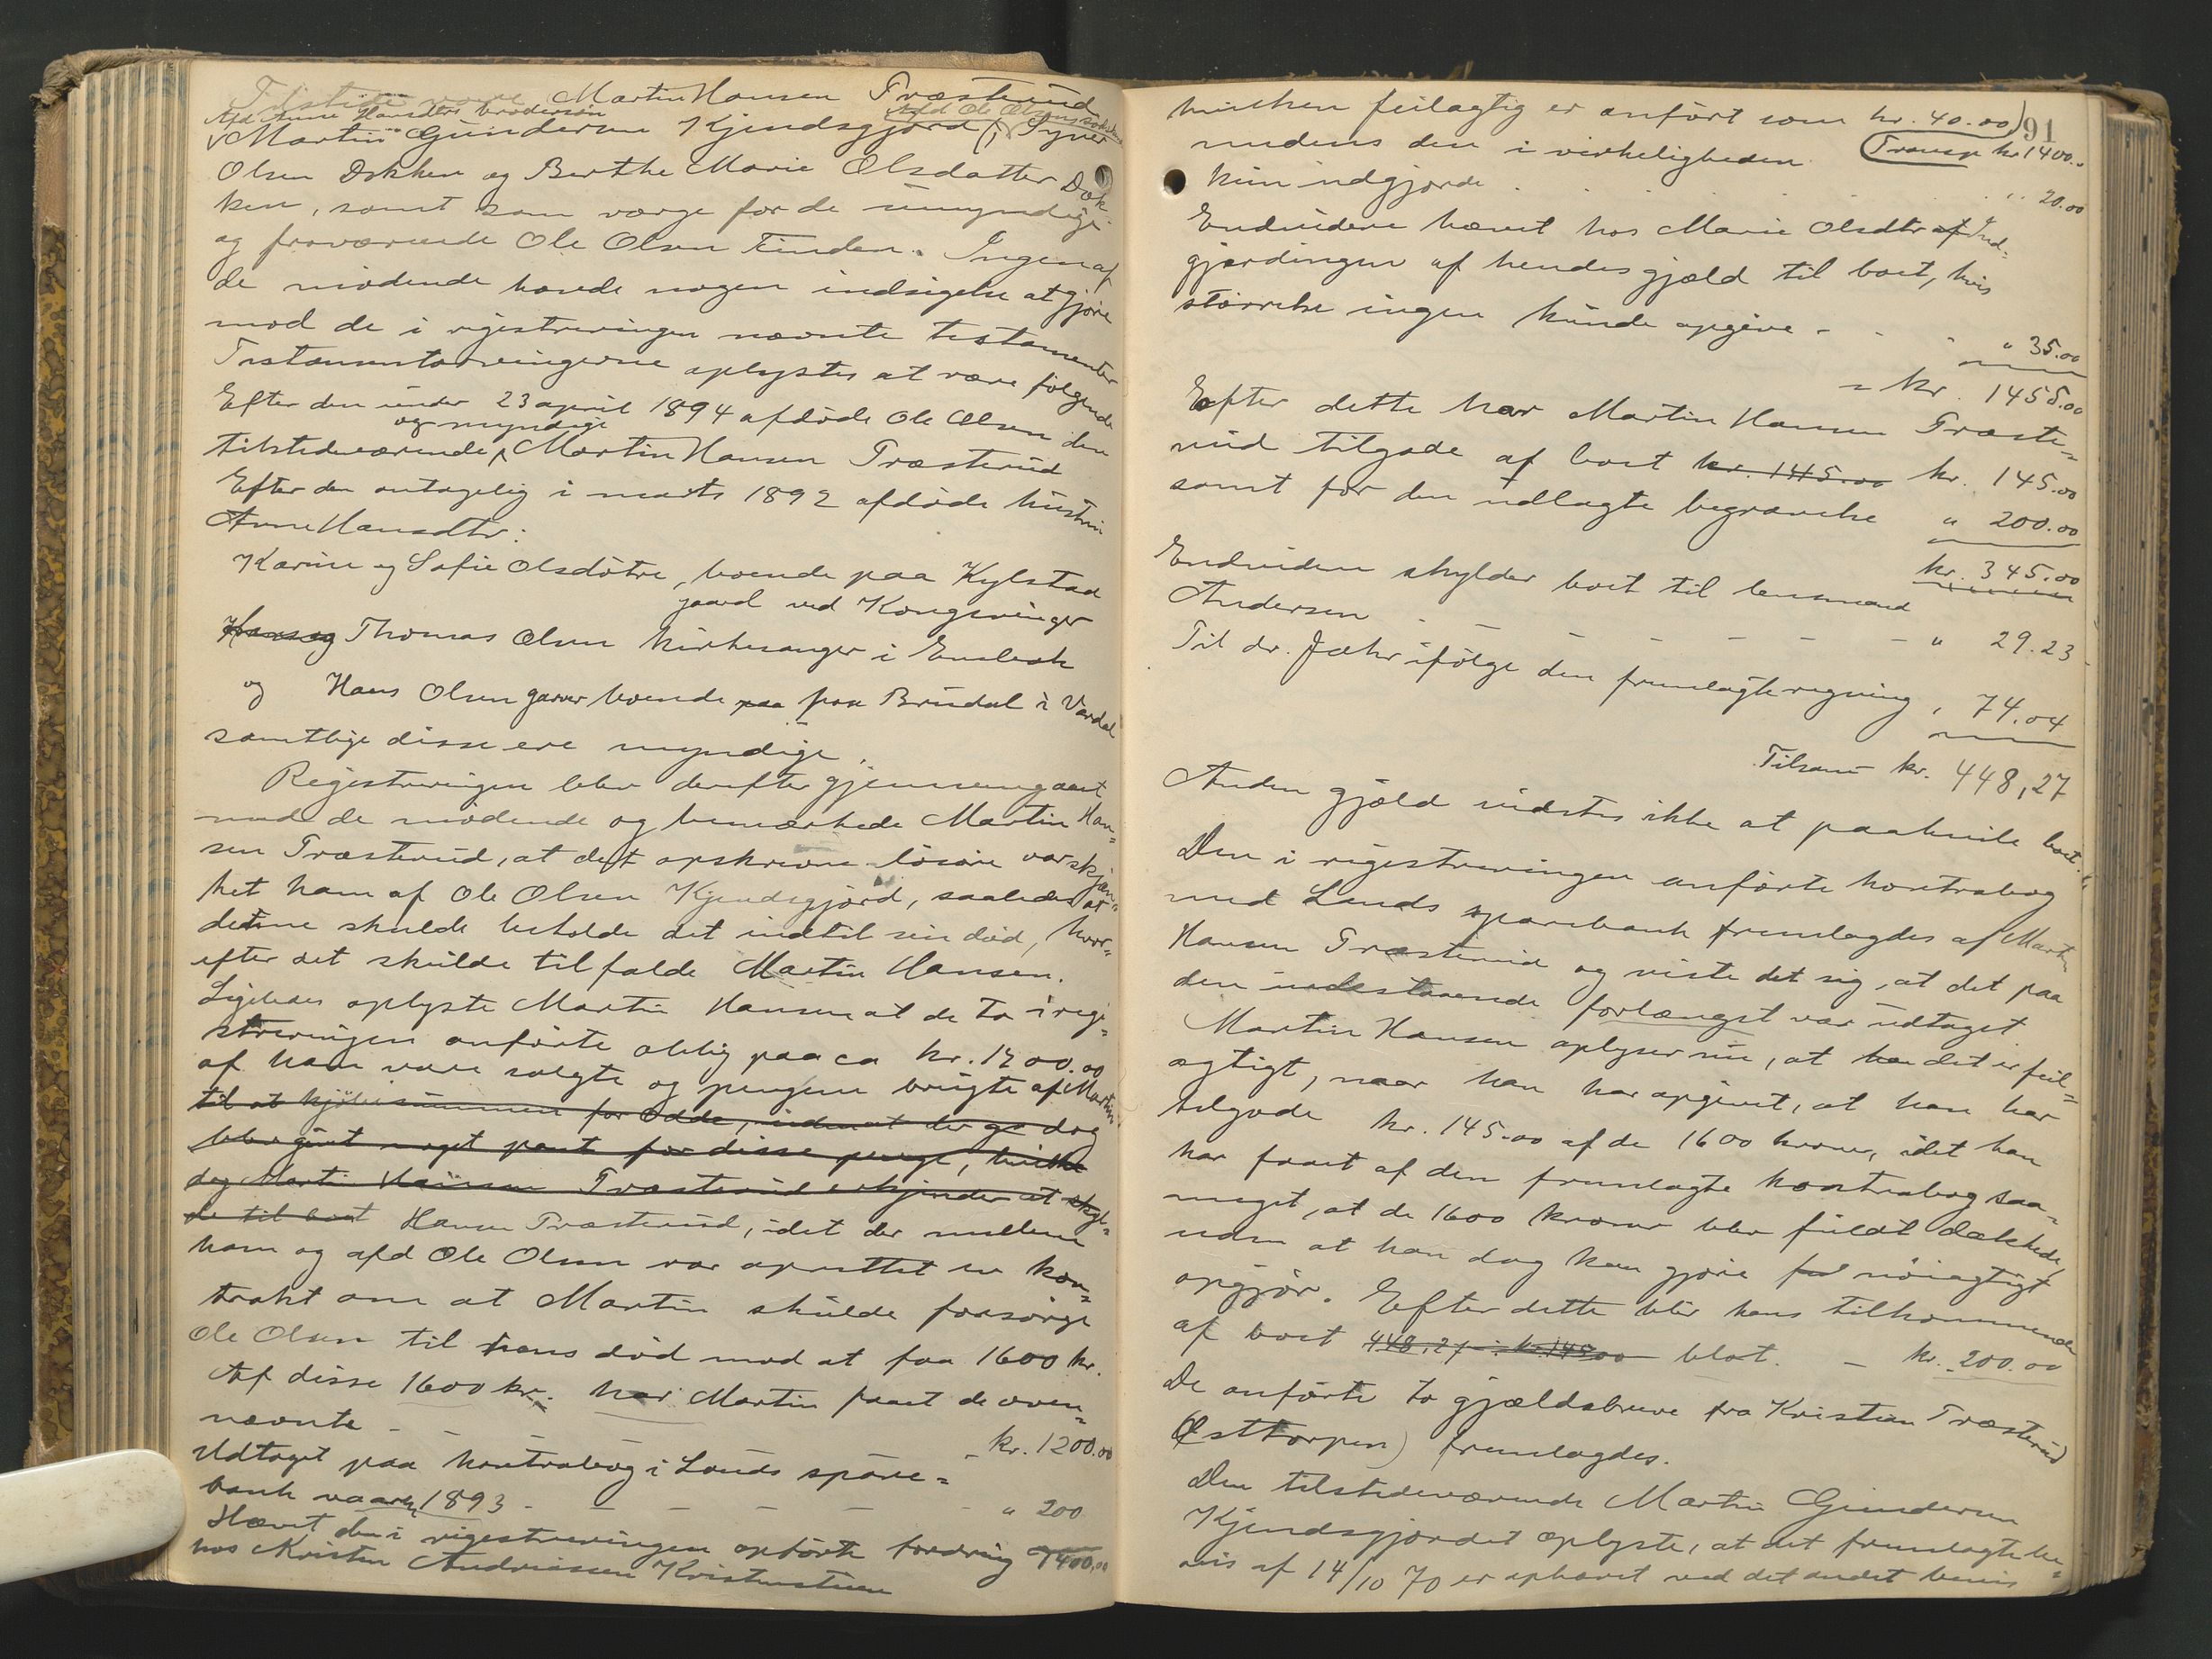 Tilstede vare Martin Hansen Træsterud
Afd Anne Hansdtrs brodersön
Afd Ole Olsens
Martin Gundersen Kjendsgjord (i) Syver
Olsen Dokken og Berthe Marie Olsdatter Dok-
ken, samt som værge for de umyndige
og fraværende Ole Olsen Tinden. Ingen af
de mødende havde nogen indsigelse at gjøre
mod de i registreringen nævnte testamenter
Testamentarvingerne oplystes at være følgende
Efter den under 23 april 1894 afdøde Ole Olsen den
og myndige
tilstedeværende Martin Hansen Træsterud
Efter den antagelig i marts 1892 afdøde hustru
Anne Hansdtr:
Karine og Sofie Olsdøtre, boende paa Kylstad
gaard ved Kongsvinger
Hans og Thomas Olsen kirkesanger i Enebak
og Hans Olsen garver boende paa paa Brudal i Vardal
samtlige disse ere myndige.
Registreringen blev derefter gjennemgaaet
med de mødende og bemærkede Martin Han=
sen Træsterud, at det opskrevne løsøre var skjæn=
ket ham af Ole Olsen Kjendsgjord, saaledes at
denne skulde beholde det indtil sin død, hvor=
efter det skulde tilfalde Martin Hansen.
Ligeledes oplyste Martin Hansen at de to i regi=
streringen anførte oblig paa ca kr. 1200.00
af ham vare solgte og pengene brugte af Martin
til at kjøbesummen for Odde, uden at der ga dog
blev givet noget pant for disse penge, hvilke
dog Martin Hansen Træsterud erkjender at skyl=
de til boet Hansen Træsterud, idet der mellem
ham og afd Ole Olsen var oprettet en kon=
trakt om at Martin skulde forsørge
Ole Olsen til hans død mod at faa 1600 kr.
Af disse 1600 kr. har Martin faaet de oven=
nævnte - - - - kr. 1200.00
Udtaget paa kontrabog i Lands spare=
bank vaaren 1893 - - - - " 200
Hævet den i registreringen opførte fordring 1400,00
hos Kristen Andreassen Kristenstuen
91
hvilken feilagtig er anført som kr. 40.00,
Transp kr 1400..
medens den i virkeligheden
kun udgjorde . . . . . . 20.00
Endvidere hævet hos Marie Olsdtr af Ind=
gjærdingen af hendes gjæld til boet, hvis
størrelse ingen kunde opgive - - - " 35.00
= kr. 1455.00
Efter dette har Martin Hansen Træste=
rud tilgode af boet kr. 145.00 kr. 145.00
samt for den udlagte begravelse " 200.00
kr. 345.00
Endvidere skylder boet til lensmand
Andersen - - - - - - " 29.23
Til dr. Jæhr ifølge den fremlagte regning " 74.04
Tilsam kr. 448,27
Anden gjæld vidstes ikke at paahvile boet.
Den i registreringen anførte kontrabog
med Lands sparebank fremlagdes af Martin
Hansen Træsterud og viste det sig, at det paa
den indestaaende forlængst var udtaget
Martin Hansen oplyser nu, at han det er feil=
agtigt, naar han har opgivet, at han har
tilgode kr. 145.00 af de 1600 kroner, idet han
har faaet af den fremlagte kontrabog saa=
meget, at de 1600 kroner blev fuldt dækkede,
uden at han dog kan gjøre ful nøiagtigt
opgjør. Efter dette blir hans tilkommende
af boet 448,27 - kr. 145.00 blot. - kr. 200.00
De anførte to gjældsbreve fra Kristian Træsterud
Østtorpen) fremlagdes.
Den tilstedeværende Martin Gundersen
Kjendsgjordet oplyste, at det fremlagte be=
vis af 14/10 70 er ophævet ved det andet bevis